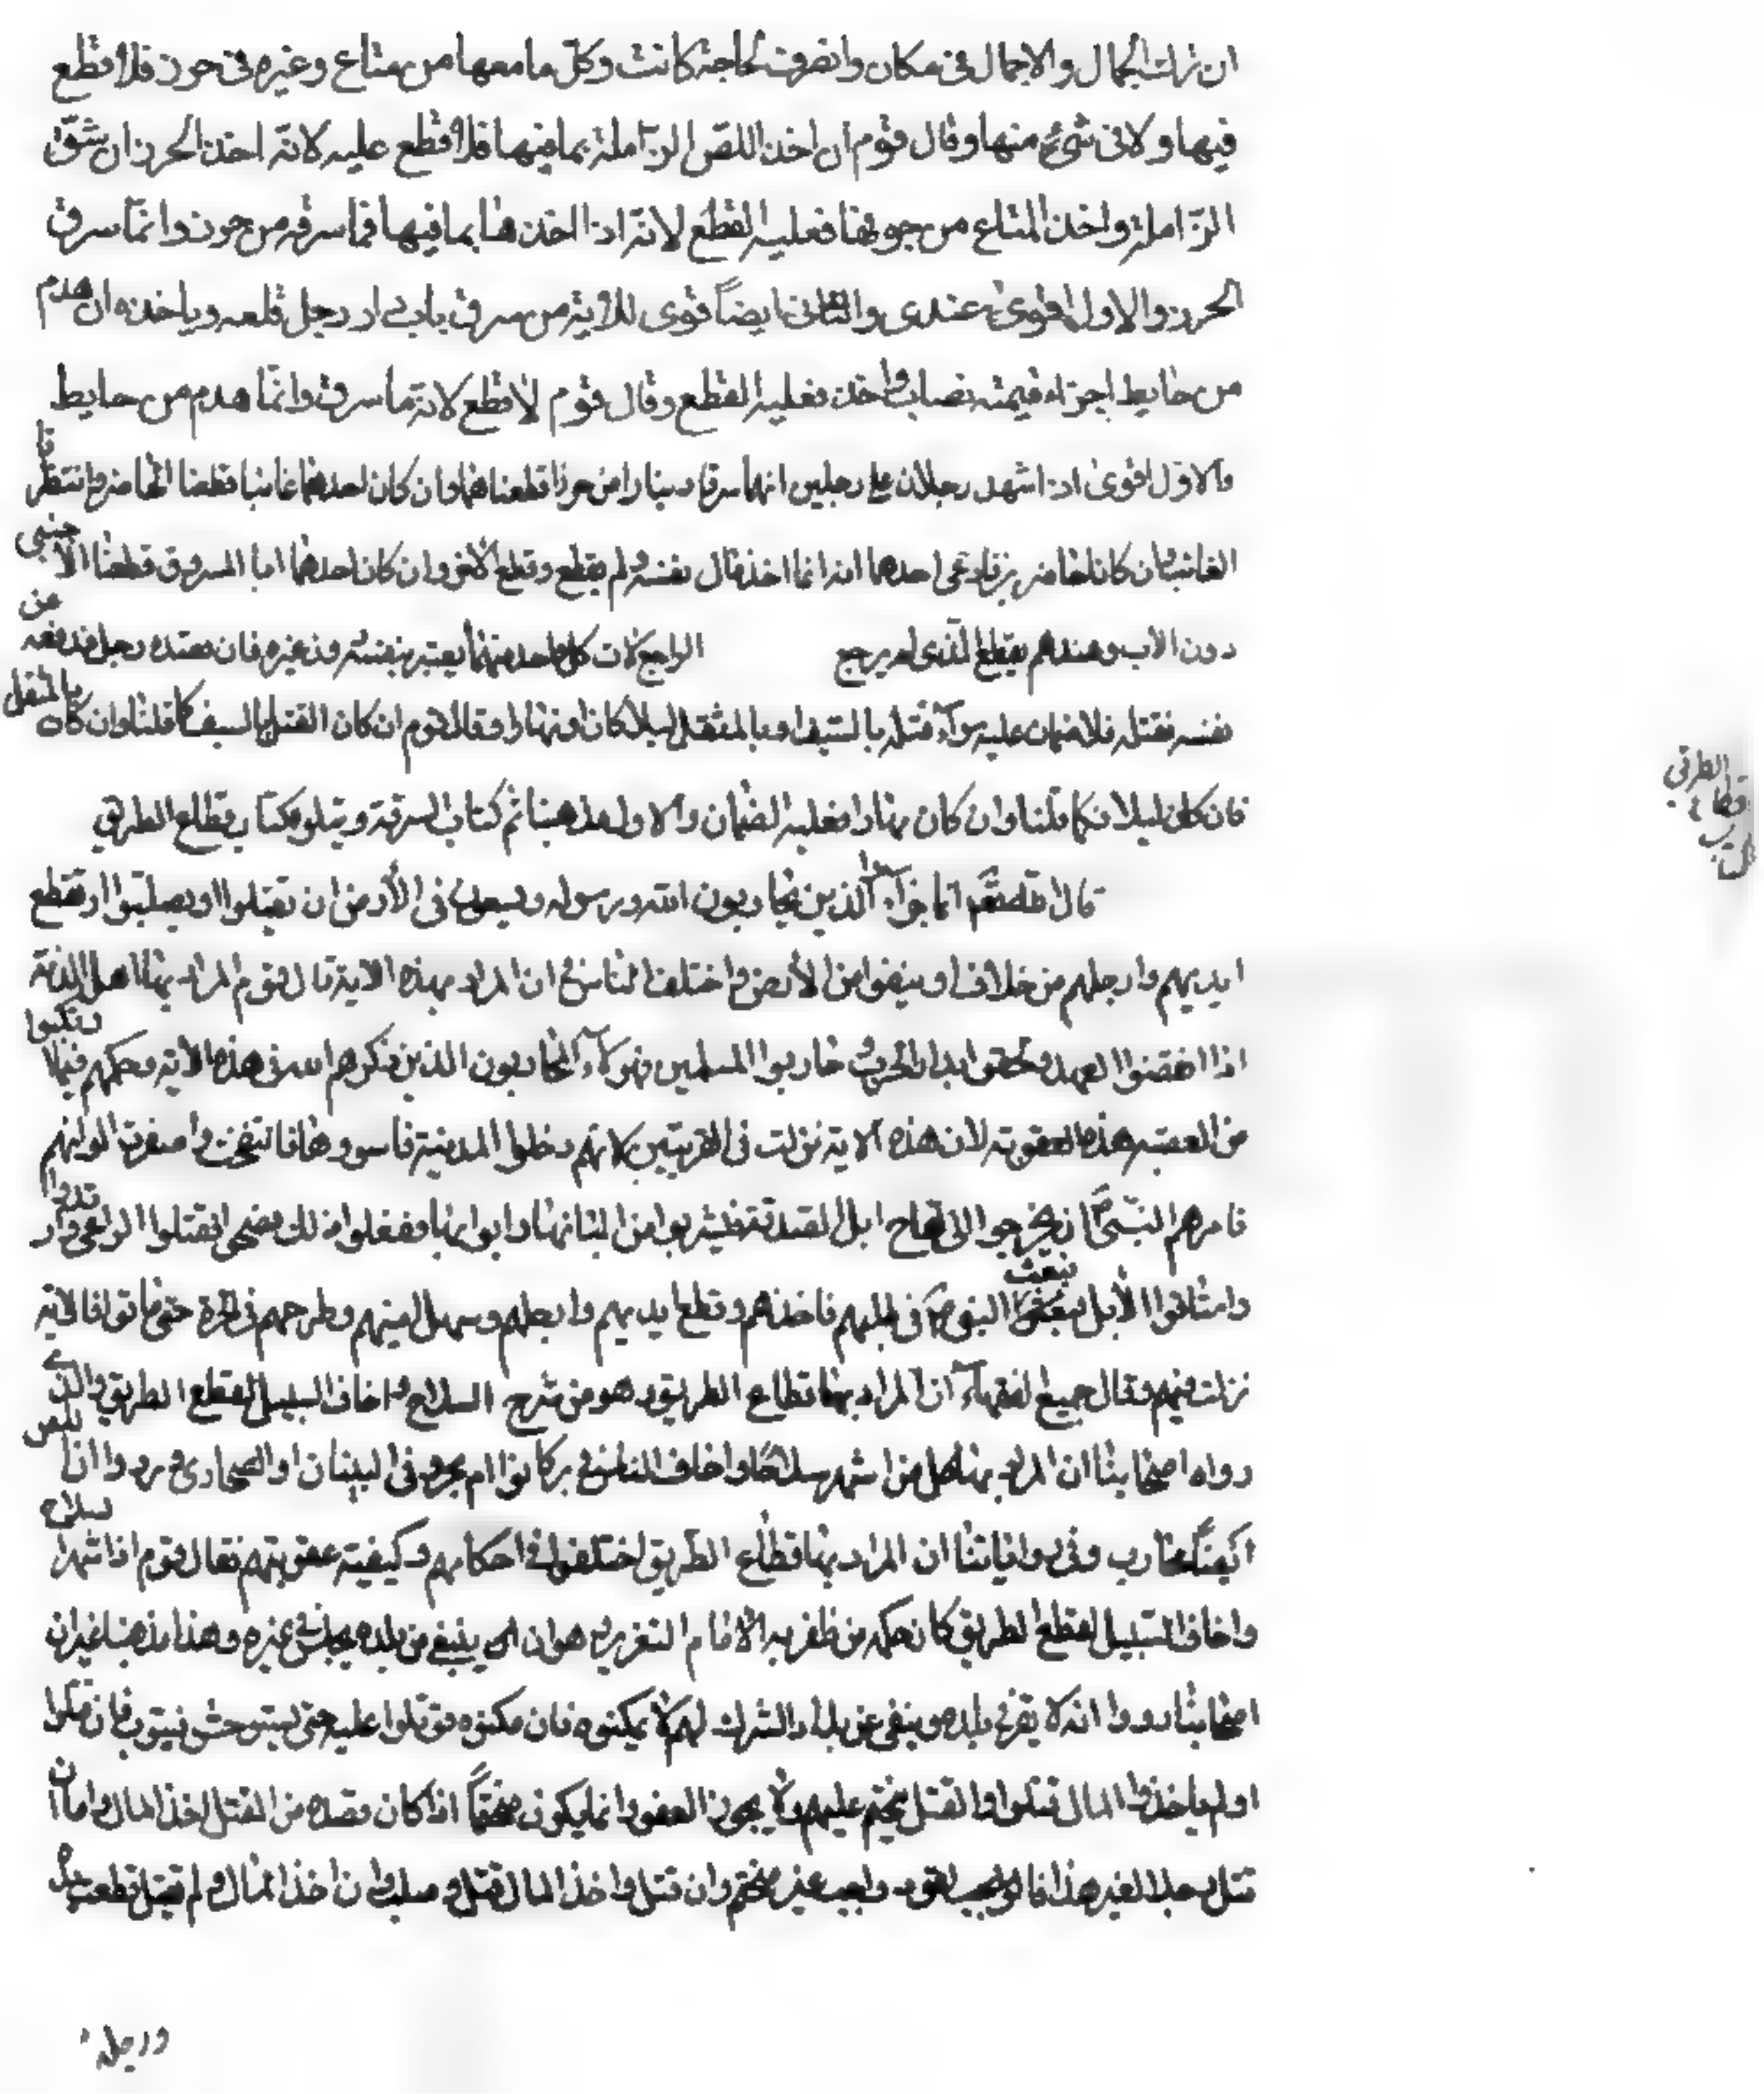 ان نزلت الجمال والاجمال فى مكان وانصرفت لحاجة كانت وكل ما معها من متاع وغيره فى حرز فلا قطع
فيها ولا فى شىء منها وقال قوم ان اخذ اللص الزاملة بما فيها فلا قطع عليه لانه اخذ الحرز ان شق
الزاملة واخذ المتاع من جوفها فعليه القطع لانه اذا اخذها بما فيها فما سرقه من حرز وانما سرق
الحرز والاول اقوى عندى والثانى ايضاً قوى للآية من سرق باب دار رجل قلعه وياخذه ان هدم
من حايط اجزاء قيمته نصاب واخذ فعليه القطع وقال قوم لا قطع لانه ما سرق وانما هدم من حايط
والاول اقوى اذا شهد رجلان على رجلين انهما سرقا دينارا من حرز قطعناهما وان كان احدهما غائبا قطعنا الحاضر وانتظرنا
الغائب وان كانا حاضرين فادعى احدهما انه انما اخذ مال نفسه لم يقطع وقطع الاخر وان كان احدهما ابا المسروق قطعنا الاجنبى
دون الاب وعندهم يقطع الذى لم يرجع الراجع لان كل واحد منهما يعتبر بنفسه دون غيره فان قصده رجل فدفعه عن
نفسه فقتله فلا ضمان عليه سواء قتله بالسيف او بالمثقل ليلا كان او نهارا وقال قوم ان كان القتل بالسيف كما قلنا وان كان بالمثقل
فان كان ليلا فكما قلنا وان كان نهارا فعليه الضمان والاول مذهبنا تم كتاب السرقة ويتلوه كتاب قطاع الطريق
كتاب قطاع الطريق
قال الله تعالى انما جزاء الذين يحاربون الله ورسوله ويسعون فى الأرض ان يقتلوا او يصلبوا او تقطع
ايديهم وارجلهم من خلاف او ينفوا من الأرض واختلف الناس فى ان المراد بهذه الاية قال قوم المراد بها اهل الذمة
اذا نقضوا العهد ولحقوا بدار الحرب وحاربوا المسلمين فهولاء المحاربون الذين ذكرهم الله فى هذه الآية وحكمهم فيما ارتكبوا
من المعصية هذه العقوبة لان هذه الاية نزلت فى العرنيين لانهم دخلوا المدينة فاستوخموها فانتفخت واصفرت الوانهم
فامرهم النبى ص ان يخرجوا الى لقاح ابل الصدقة فيشربوا من البانها وابوالها ففعلوا ذلك فصحوا فقتلوا الراعى وارتدوا
واستاقوا الأبل فبعث النبى ص فى طلبهم فاخذهم وقطع ايديهم وارجلهم وسمل اعينهم وطرحهم فى الحرة حتى ماتوا فالاية
نزلت فيهم وقال جميع الفقهاء ان المراد بها قطاع الطريق وهو من شهر السلاح واخاف السبيل لقطع الطريق والذى
رواه اصحابنا ان المراد بها كل من شهر سلاحًا واخاف الناس فى بر كانوا ام بحر وفى البنيان او الصحارى ورووا ان اللص
ايضًا محارب وفى رواياتنا ان المراد بها قطاع الطريق اختلفوا فى احكامهم وكيفية عقوبتهم فقال قوم اذا شهر السلاح
واخاف السبيل لقطع الطريق كان حكمه من ظفر به الامام التعزير وهو ان ينفى من بلده ويحبس فى غيره وهذا مذهبنا غير ان
اصحابنا رووا انه لا يقر فى بلده وينفى عن بلاد الشرك لهم لا يمكنوه فان مكنوه قوتلوا عليه حتى يستوحش فيتوب فان قتلوا
ولم ياخذوا المال قتلوا والقتل يتحتم عليهم ولا يجوز العفو وانما يكون متحتماً اذا كان قصده من القتل اخذ المال واما ان
قتل رجلا لغير هذا فالواجب القود واجب غير متحتم وان قتل واخذ المال قتل وصلب وان اخذ المال ولم يقتل قطعت يده
ورجله